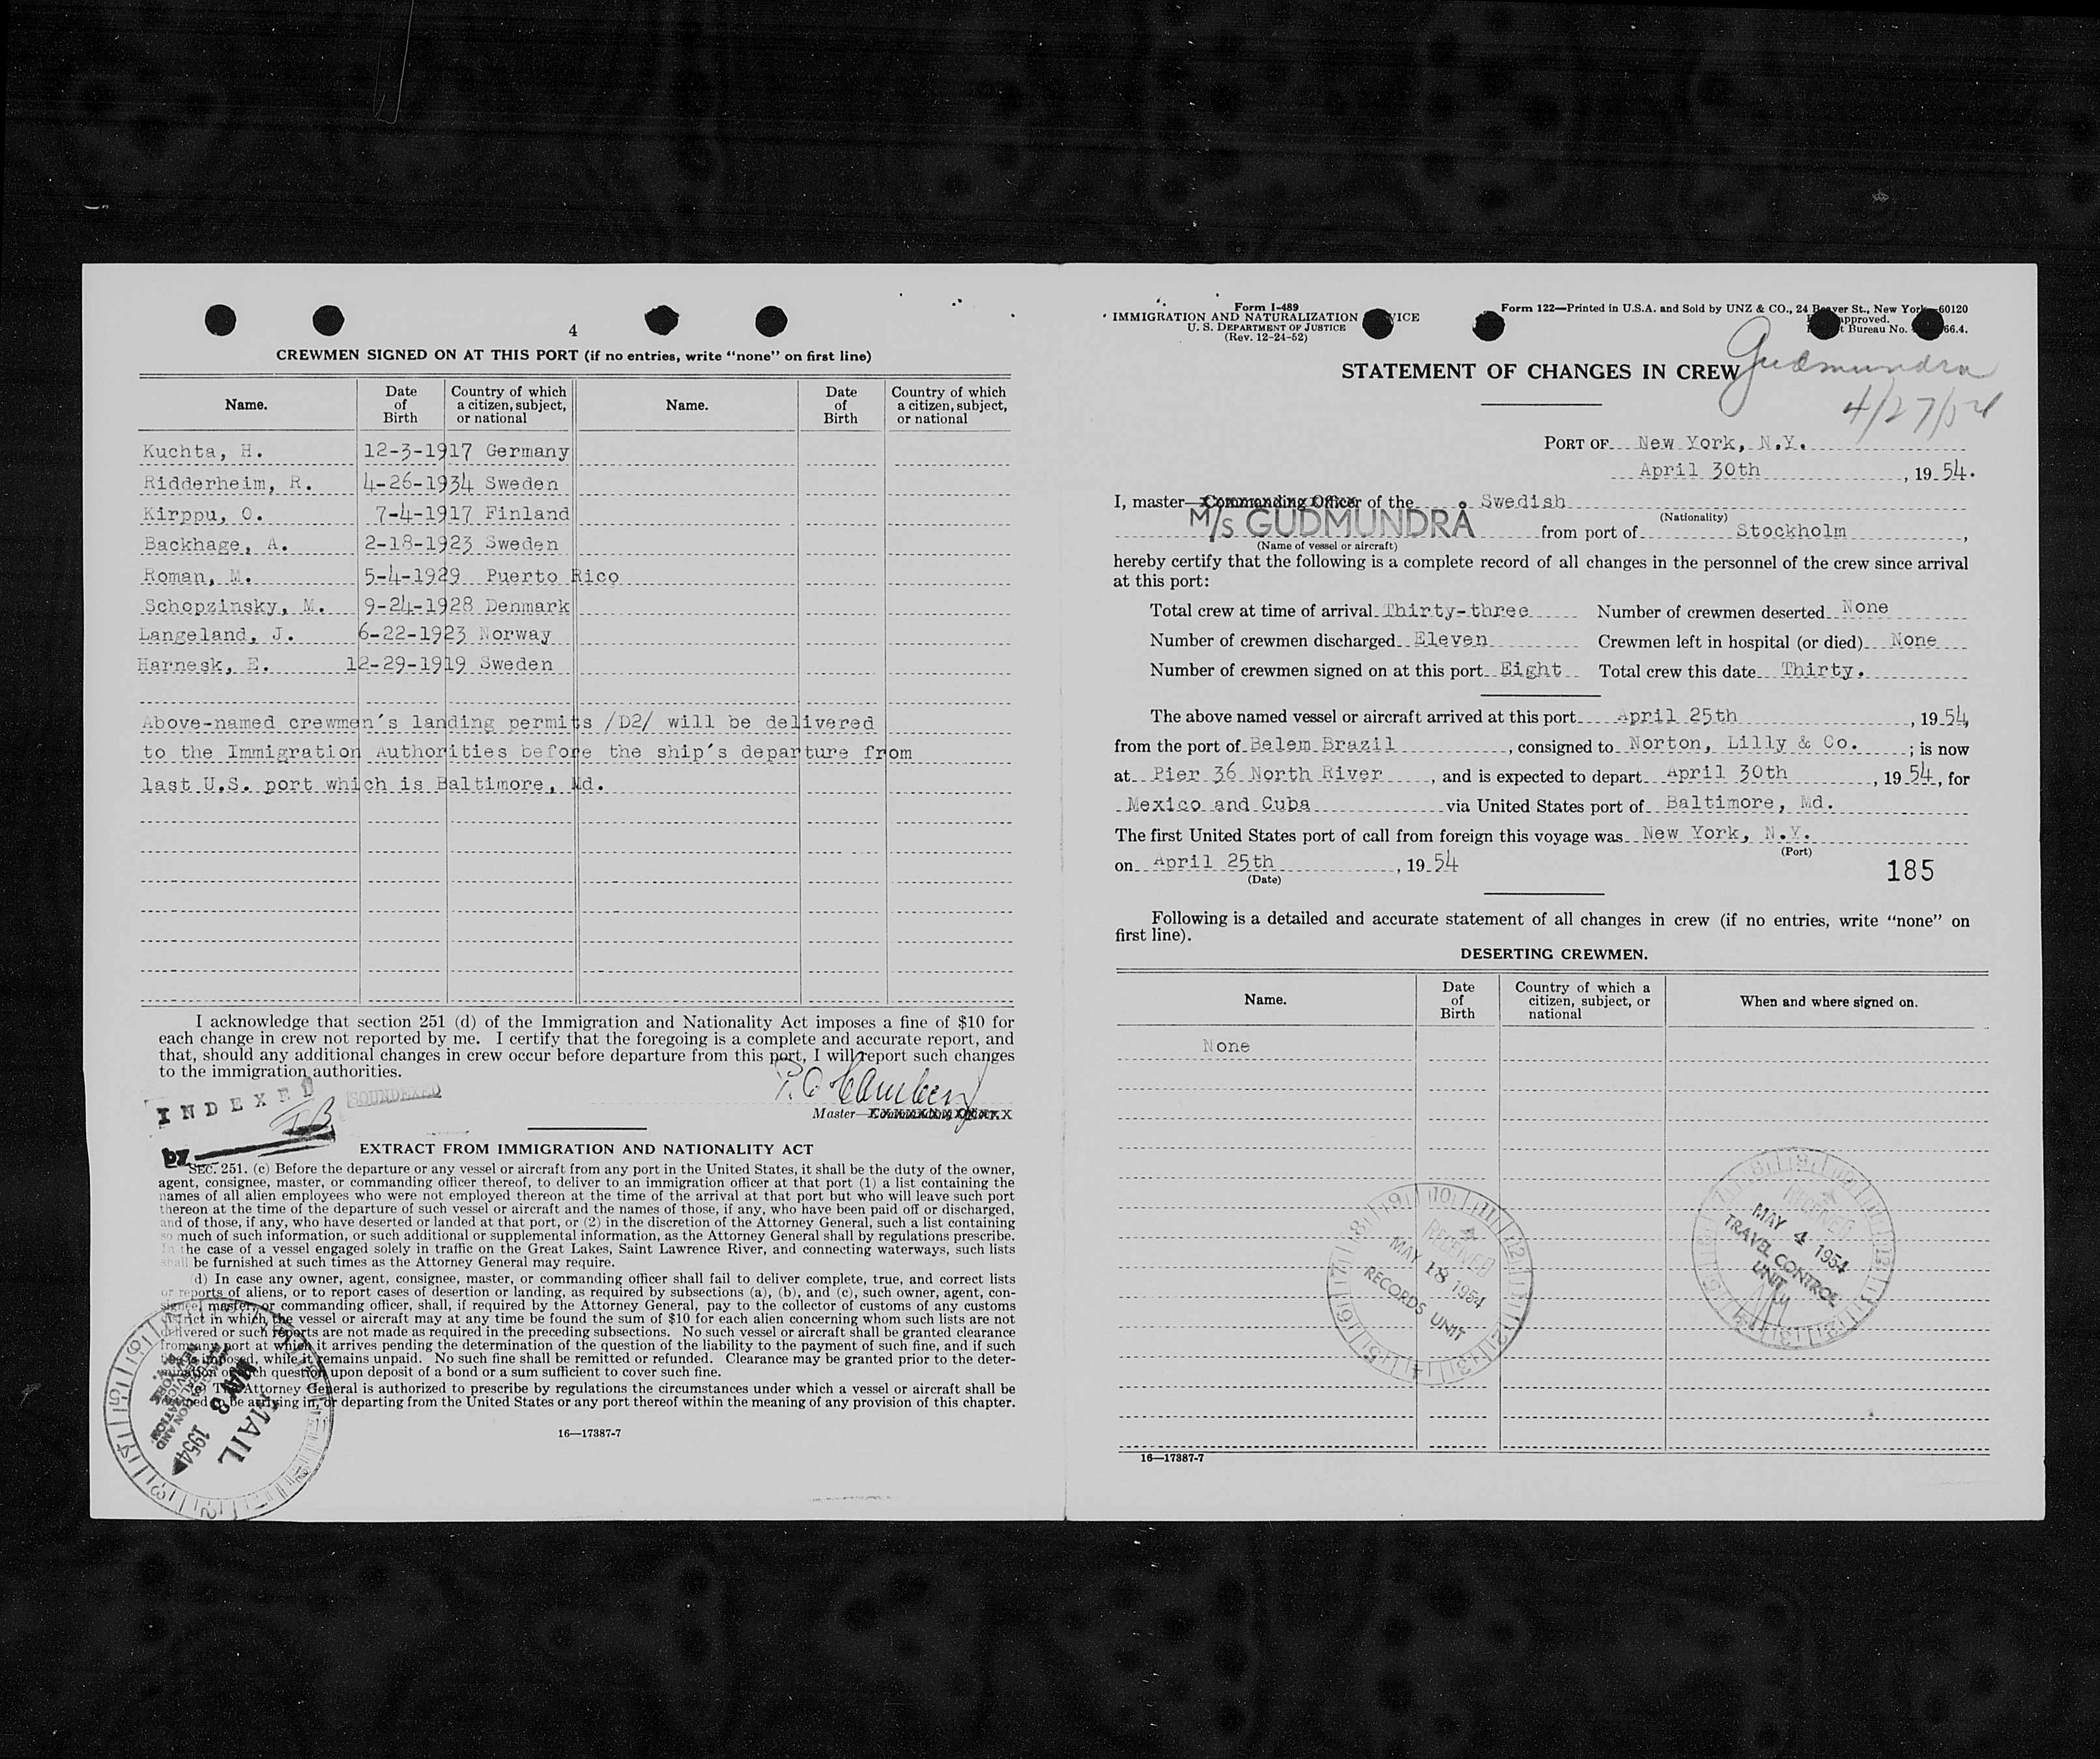 4
CREWMEN SIGNED ON AT THIS PORT (if no entries, write "none" on first line)
Name. Date of Birth Country of which a citizen, subject, or national Name. Date of Birth Country of which a citizen, subject, or national
Kuchta, H. 12-3-1917 Germany
Ridderheim, R. 4-26-1934 Sweden
Kirppu, O. 7-4-1917 Finland
Backhage, A. 2-18-1923 Sweden
Roman, M. 5-4-1929 Puerto Rico
Schopzinsky, M. 9-24-1928 Denmark
Langeland, J. 6-22-1923 Norway
Harnesk, E. 12-29-1919 Sweden
Above-named crewmen's landing permits /D2/ will be delivered
to the Immigration Authorities before the ship's departure from
last U.S. port which is Baltimore, Md.
I acknowledge that section 251 (d) of the Immigration and Nationality Act imposes a fine of $10 for
each change in crew not reported by me. I certify that the foregoing is a complete and accurate report, and
that, should any additional changes in crew occur before departure from this port, I will report such changes
to the immigration authorities.
INDEXED
SOUNDEXED
by
Master—
EXTRACT FROM IMMIGRATION AND NATIONALITY ACT
SEC. 251. (c) Before the departure or any vessel or aircraft from any port in the United States, it shall be the duty of the owner,
agent, consignee, master, or commanding officer thereof, to deliver to an immigration officer at that port (1) a list containing the
names of all alien employees who were not employed thereon at the time of the arrival at that port but who will leave such port
thereon at the time of the departure of such vessel or aircraft and the names of those, if any, who have been paid off or discharged,
and of those, if any, who have deserted or landed at that port, or (2) in the discretion of the Attorney General, such a list containing
so much of such information, or such additional or supplemental information, as the Attorney General shall by regulations prescribe.
In the case of a vessel engaged solely in traffic on the Great Lakes, Saint Lawrence River, and connecting waterways, such lists
shall be furnished at such times as the Attorney General may require.
(d) In case any owner, agent, consignee, master, or commanding officer shall fail to deliver complete, true, and correct lists
or reports of aliens, or to report cases of desertion or landing, as required by subsections (a), (b), and (c), such owner, agent, con-
signee, master, or commanding officer, shall, if required by the Attorney General, pay to the collector of customs of any customs
district in which the vessel or aircraft may at any time be found the sum of $10 for each alien concerning whom such lists are not
delivered or such reports are not made as required in the preceding subsections. No such vessel or aircraft shall be granted clearance
from any port at which it arrives pending the determination of the question of the liability to the payment of such fine, and if such
imposed, while it remains unpaid. No such fine shall be remitted or refunded. Clearance may be granted prior to the deter-
question upon deposit of a bond or a sum sufficient to cover such fine.
Attorney General is authorized to prescribe by regulations the circumstances under which a vessel or aircraft shall be
be arriving in, or departing from the United States or any port thereof within the meaning of any provision of this chapter.
MAIL
MAY 3 1954
16—17387-7
Form I-489
IMMIGRATION AND NATURALIZATION VICE
U. S. DEPARTMENT OF JUSTICE
(Rev. 12-24-52)
Form 122—Printed in U.S.A. and Sold by UNZ & CO., 24 Beaver St., New York—60120
approved.
Bureau No. 66.4.
Gudmundra
4/27/54
STATEMENT OF CHANGES IN CREW
PORT OF New York, N.Y.
April 30th, 1954.
I, master—Commanding Officer of the Swedish
(Nationality)
M/S GUDMUNDRÅ from port of Stockholm,
(Name of vessel or aircraft)
hereby certify that the following is a complete record of all changes in the personnel of the crew since arrival
at this port:
Total crew at time of arrival Thirty-three Number of crewmen deserted None
Number of crewmen discharged Eleven Crewmen left in hospital (or died) None
Number of crewmen signed on at this port Eight Total crew this date Thirty.
The above named vessel or aircraft arrived at this port April 25th, 1954,
from the port of Belem Brazil, consigned to Norton, Lilly & Co.; is now
at Pier 36 North River, and is expected to depart April 30th, 1954, for
Mexico and Cuba via United States port of Baltimore, Md.
The first United States port of call from foreign this voyage was New York, N.Y.
(Port)
on April 25th, 1954
(Date)
185
Following is a detailed and accurate statement of all changes in crew (if no entries, write "none" on
first line).
DESERTING CREWMEN.
Name. Date of Birth Country of which a citizen, subject, or national When and where signed on.
None
RECEIVED
MAY 18 1954
RECORDS UNIT
RECEIVED
MAY 4 1954
TRAVEL CONTROL
UNIT
16—17387-7